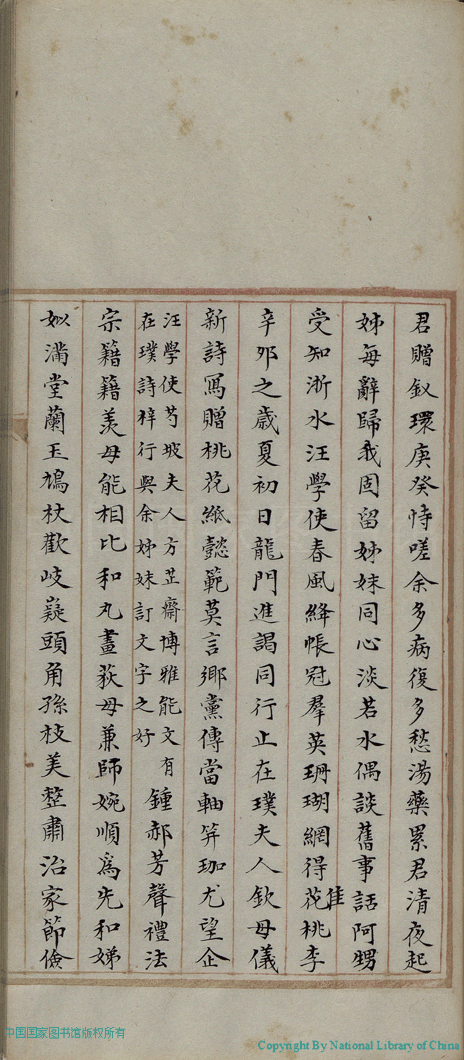 君贈釵環庚癸恃嗟余多病復多愁湯藥累君清夜起
姊每辭歸我固留姊妹同心淡若水偶談舊事話阿甥
受知浙水汪學使春風絳帳冠羣英珊瑚網得花佳桃李
辛夘之歲夏初日龍門進謁同行止在璞夫人欽母儀
新詩冩贈桃花紙懿範莫言鄉黨傳當軸笄珈尤望企
汪學使芍坡夫人方芷齋博雅能文有
在璞詩梓行與余姊妹訂文字之好
鍾郝芳聲禮法
宗籍籍羡母能相比和丸畫荻母兼師婉順為先和娣
姒滿堂蘭玉鳩杖歡岐嶷頭角孫枝美整肅治家節儉
中国国家图书馆版权所有
Copyright By National Library of China